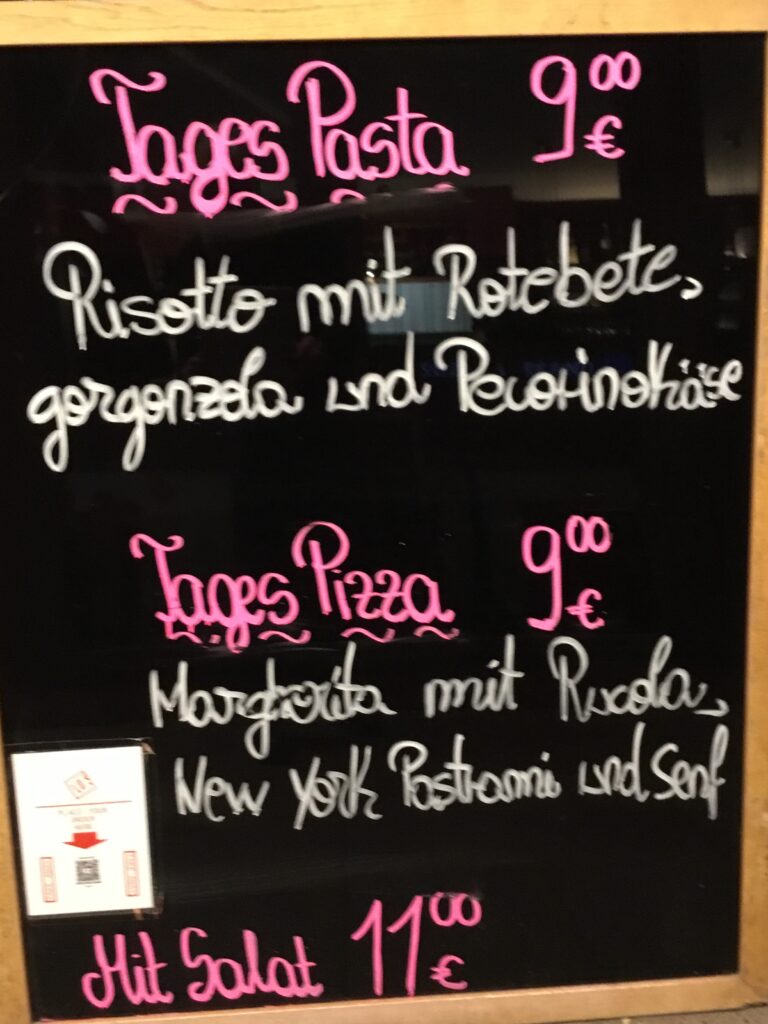 Tages Pasta 9⁰⁰ €
Risotto mit Rotebete,
gorgonzola und Pecorinokäse
Tages Pizza 9⁰⁰ €
Margherita mit Rucola,
New York Pastrami und Senf
PLACE YOUR
ORDER
HERE
Mit Salat 11⁰⁰ €